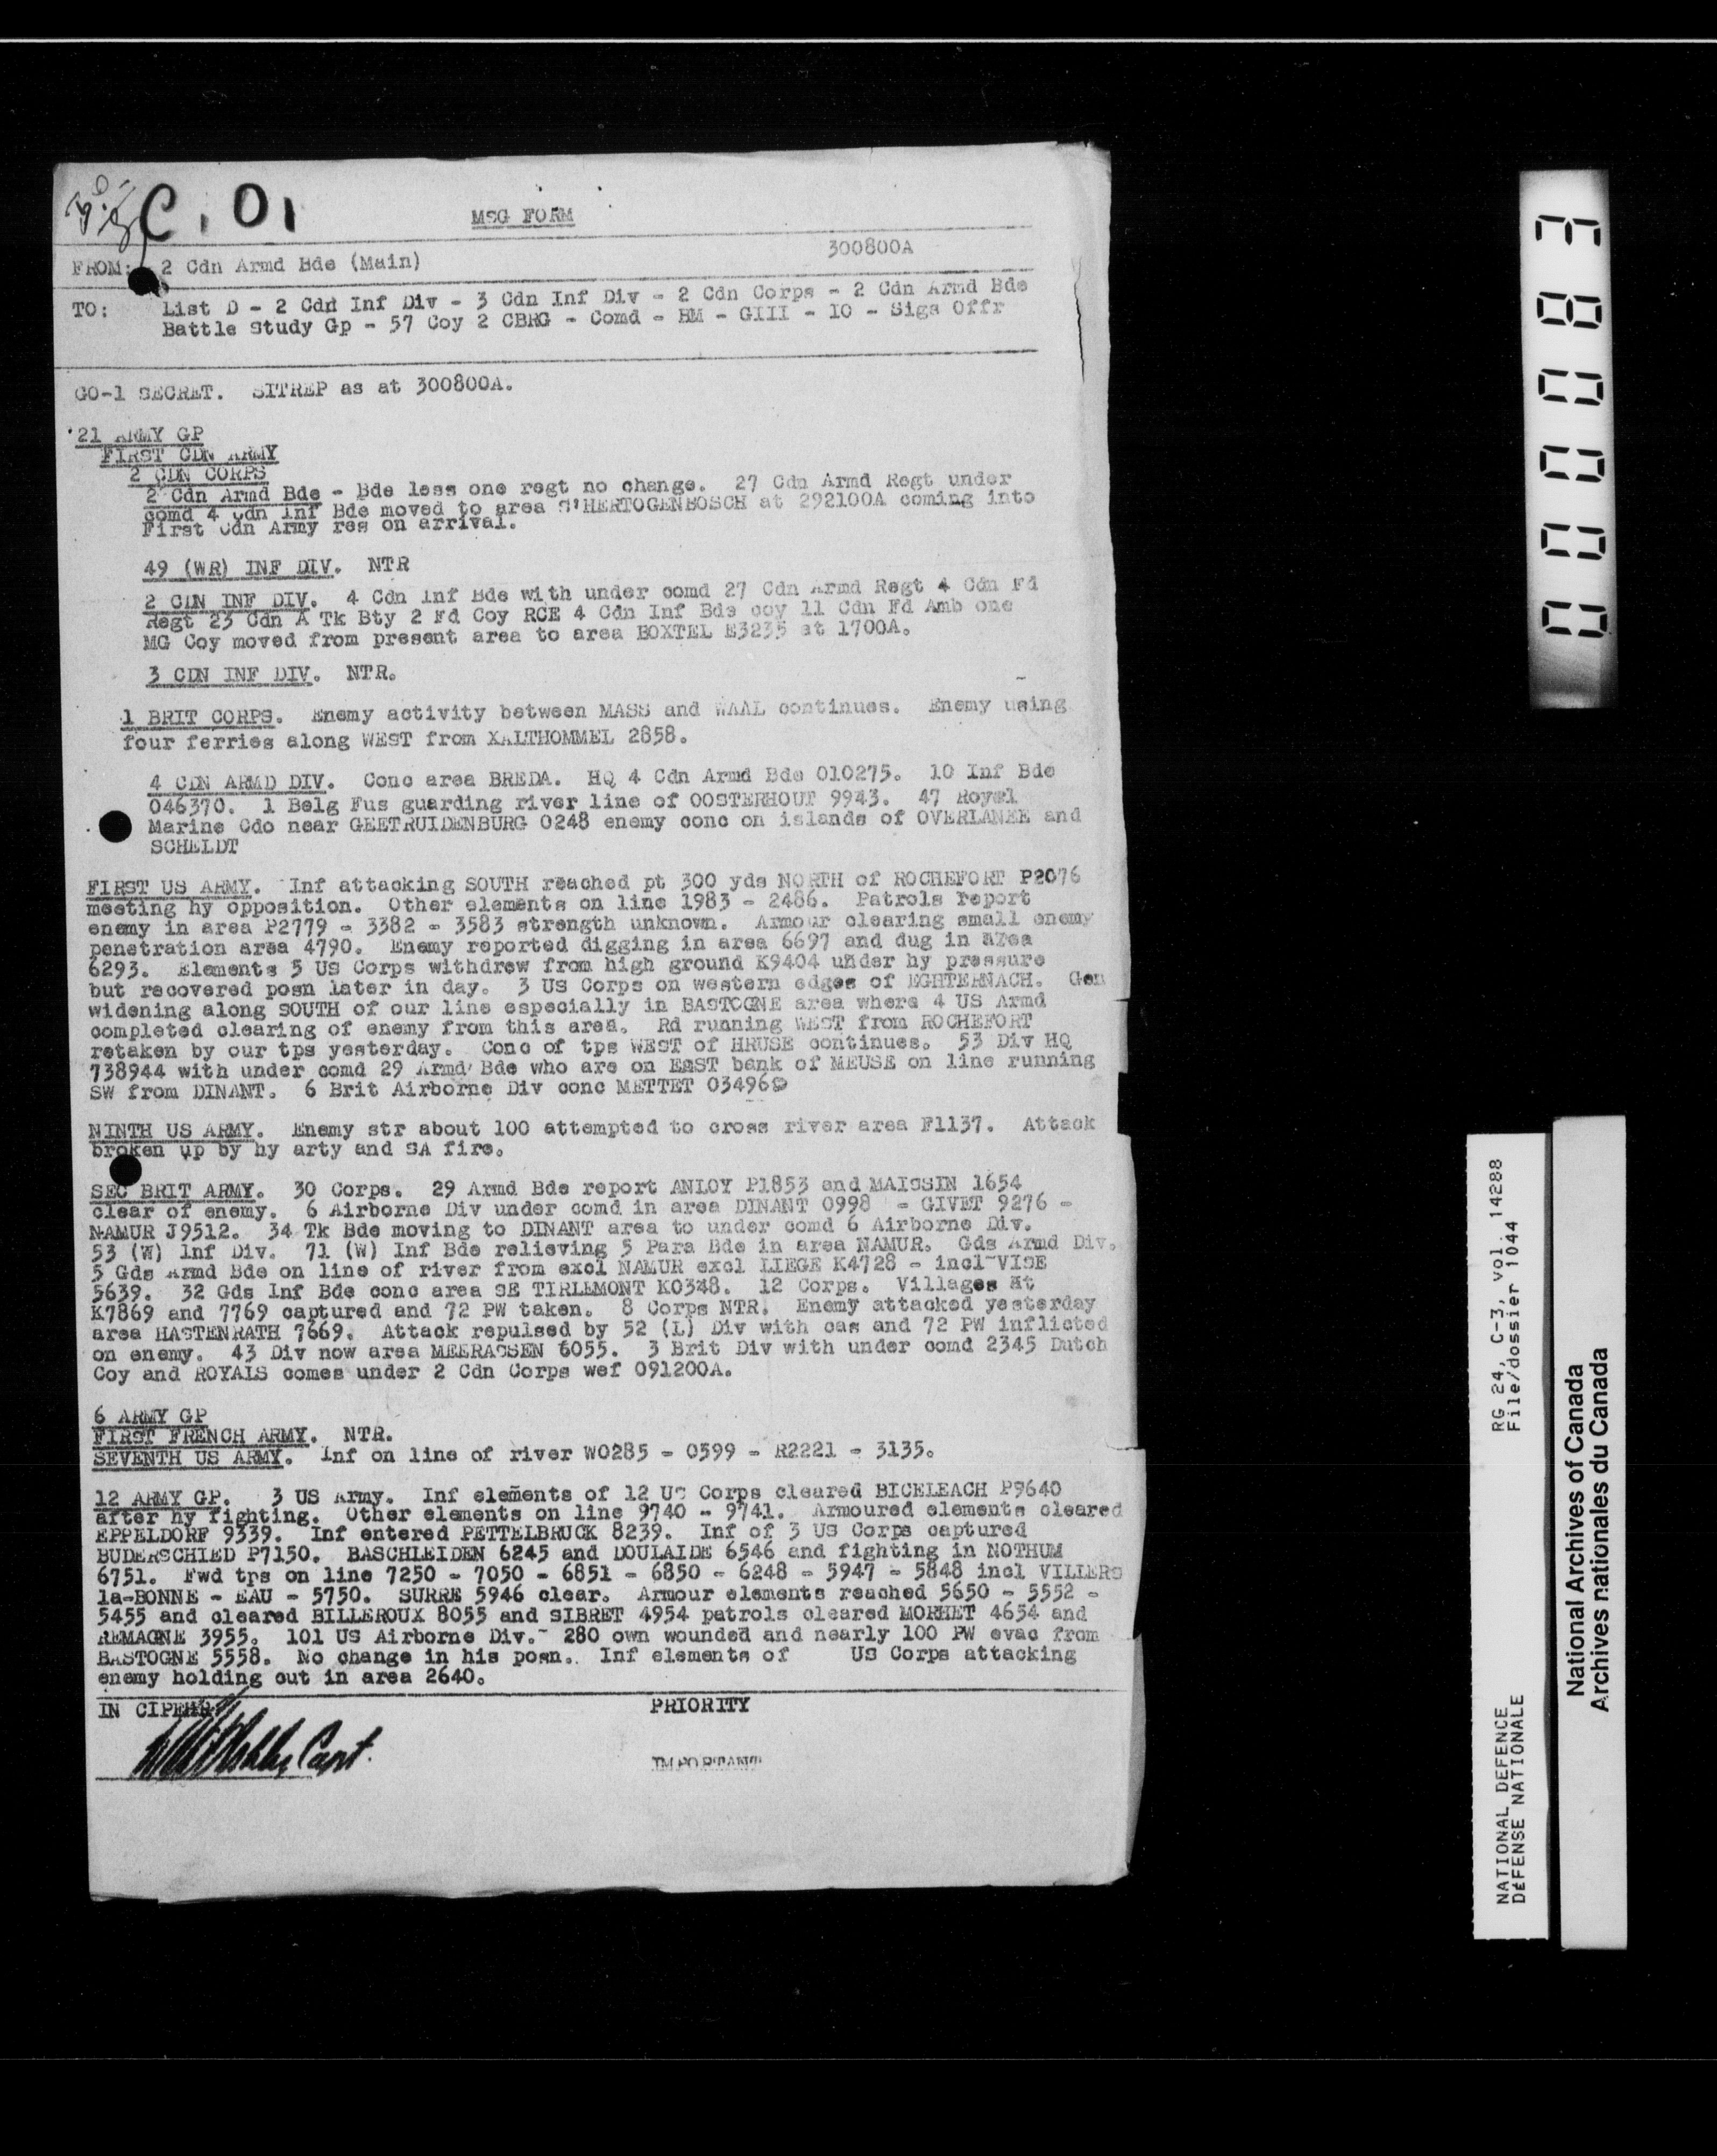 C. O.
MSG FORM
300800A
FROM: 2 Cdn Armd Bde (Main)
TO: List D - 2 Cdn Inf Div - 3 Cdn Inf Div - 2 Cdn Corps - 2 Cdn Armd Bde
Battle Study Gp - 57 Coy 2 CBRG - Comd - BM - GIII - IO - Sigs Offr
GO-1 SECRET. SITREP as at 300800A.
21 ARMY GP
FIRST CDN ARMY
2 CDN CORPS
2 Cdn Armd Bde - Bde less one regt no change. 27 Cdn Armd Regt under
comd 4 Cdn Inf Bde moved to area S'HERTOGENBOSCH at 292100A coming into
First Cdn Army res on arrival.
49 (WR) INF DIV. NTR
2 CDN INF DIV. 4 Cdn Inf Bde with under comd 27 Cdn Armd Regt 4 Cdn Fd
Regt 23 Cdn A Tk Bty 2 Fd Coy RCE 4 Cdn Inf Bde coy 11 Cdn Fd Amb one
MG Coy moved from present area to area BOXTEL E3235 at 1700A.
3 CDN INF DIV. NTR.
1 BRIT CORPS. Enemy activity between MASS and WAAL continues. Enemy using
four ferries along WEST from XALTHOMMEL 2858.
4 CDN ARMD DIV. Conc area BREDA. HQ 4 Cdn Armd Bde 010275. 10 Inf Bde
046370. 1 Belg Fus guarding river line of OOSTERHOUT 9943. 47 Royal
Marine Cdo near GEETRUIDENBURG 0248 enemy conc on islands of OVERLANEE and
SCHELDT
FIRST US ARMY. Inf attacking SOUTH reached pt 300 yds NORTH of ROCHEFORT P2076
meeting hy opposition. Other elements on line 1983 - 2486. Patrols report
enemy in area P2779 - 3382 - 3583 strength unknown. Armour clearing small enemy
penetration area 4790. Enemy reported digging in area 6697 and dug in area
6293. Elements 5 US Corps withdrew from high ground K9404 under hy pressure
but recovered posn later in day. 3 US Corps on western edges of EGHTERNACH. Gen
widening along SOUTH of our line especially in BASTOGNE area where 4 US Armd
completed clearing of enemy from this area. Rd running WEST from ROCHEFORT
retaken by our tps yesterday. Conc of tps WEST of HRUSE continues. 53 Div HQ
738944 with under comd 29 Armd Bde who are on EAST bank of MEUSE on line running
SW from DINANT. 6 Brit Airborne Div conc METTET 03496
NINTH US ARMY. Enemy str about 100 attempted to cross river area F1137. Attack
broken up by hy arty and SA fire.
SEC BRIT ARMY. 30 Corps. 29 Armd Bde report ANLOY P1853 and MAISSIN 1654
clear of enemy. 6 Airborne Div under comd in area DINANT 0998 - GIVET 9276 -
NAMUR J9512. 34 Tk Bde moving to DINANT area to under comd 6 Airborne Div.
53 (W) Inf Div. 71 (W) Inf Bde relieving 5 Para Bde in area NAMUR. Gds Armd Div.
5 Gds Armd Bde on line of river from excl NAMUR excl LIEGE K4728 - incl VISE
5639. 32 Gds Inf Bde conc area SE TIRLEMONT K0348. 12 Corps. Villages at
K7869 and 7769 captured and 72 PW taken. 8 Corps NTR. Enemy attacked yesterday
area HASTENRATH 7669. Attack repulsed by 52 (L) Div with cas and 72 PW inflicted
on enemy. 43 Div now area MEERASSEN 6055. 3 Brit Div with under comd 2345 Dutch
Coy and ROYALS comes under 2 Cdn Corps wef 091200A.
6 ARMY GP
FIRST FRENCH ARMY. NTR.
SEVENTH US ARMY. Inf on line of river W0285 - 0599 - R2221 - 3135.
12 ARMY GP. 3 US Army. Inf elements of 12 US Corps cleared BICELEACH P9640
after hy fighting. Other elements on line 9740 - 9741. Armoured elements cleared
EPPELDORF 9339. Inf entered PETTELBRUCK 8239. Inf of 3 US Corps captured
BUDERSCHIED P7150. BASCHLEIDEN 6245 and DOULAIDE 6546 and fighting in NOTHUM
6751. Fwd tps on line 7250 - 7050 - 6851 - 6850 - 6248 - 5947 - 5848 incl VILLERS
la-BONNE - EAU - 5750. SURRE 5946 clear. Armour elements reached 5650 - 5552 -
5455 and cleared BILLEROUX 8055 and SIBRET 4954 patrols cleared MORHET 4654 and
REMAGNE 3955. 101 US Airborne Div. 280 own wounded and nearly 100 PW evac from
BASTOGNE 5558. No change in his posn. Inf elements of US Corps attacking
enemy holding out in area 2640.
IN CIPHER PRIORITY
Capt.
IMPORTANT
0000083
RG 24, C-3, vol. 14288
File/dossier 1044
NATIONAL DEFENCE
DÉFENSE NATIONALE
National Archives of Canada
Archives nationales du Canada